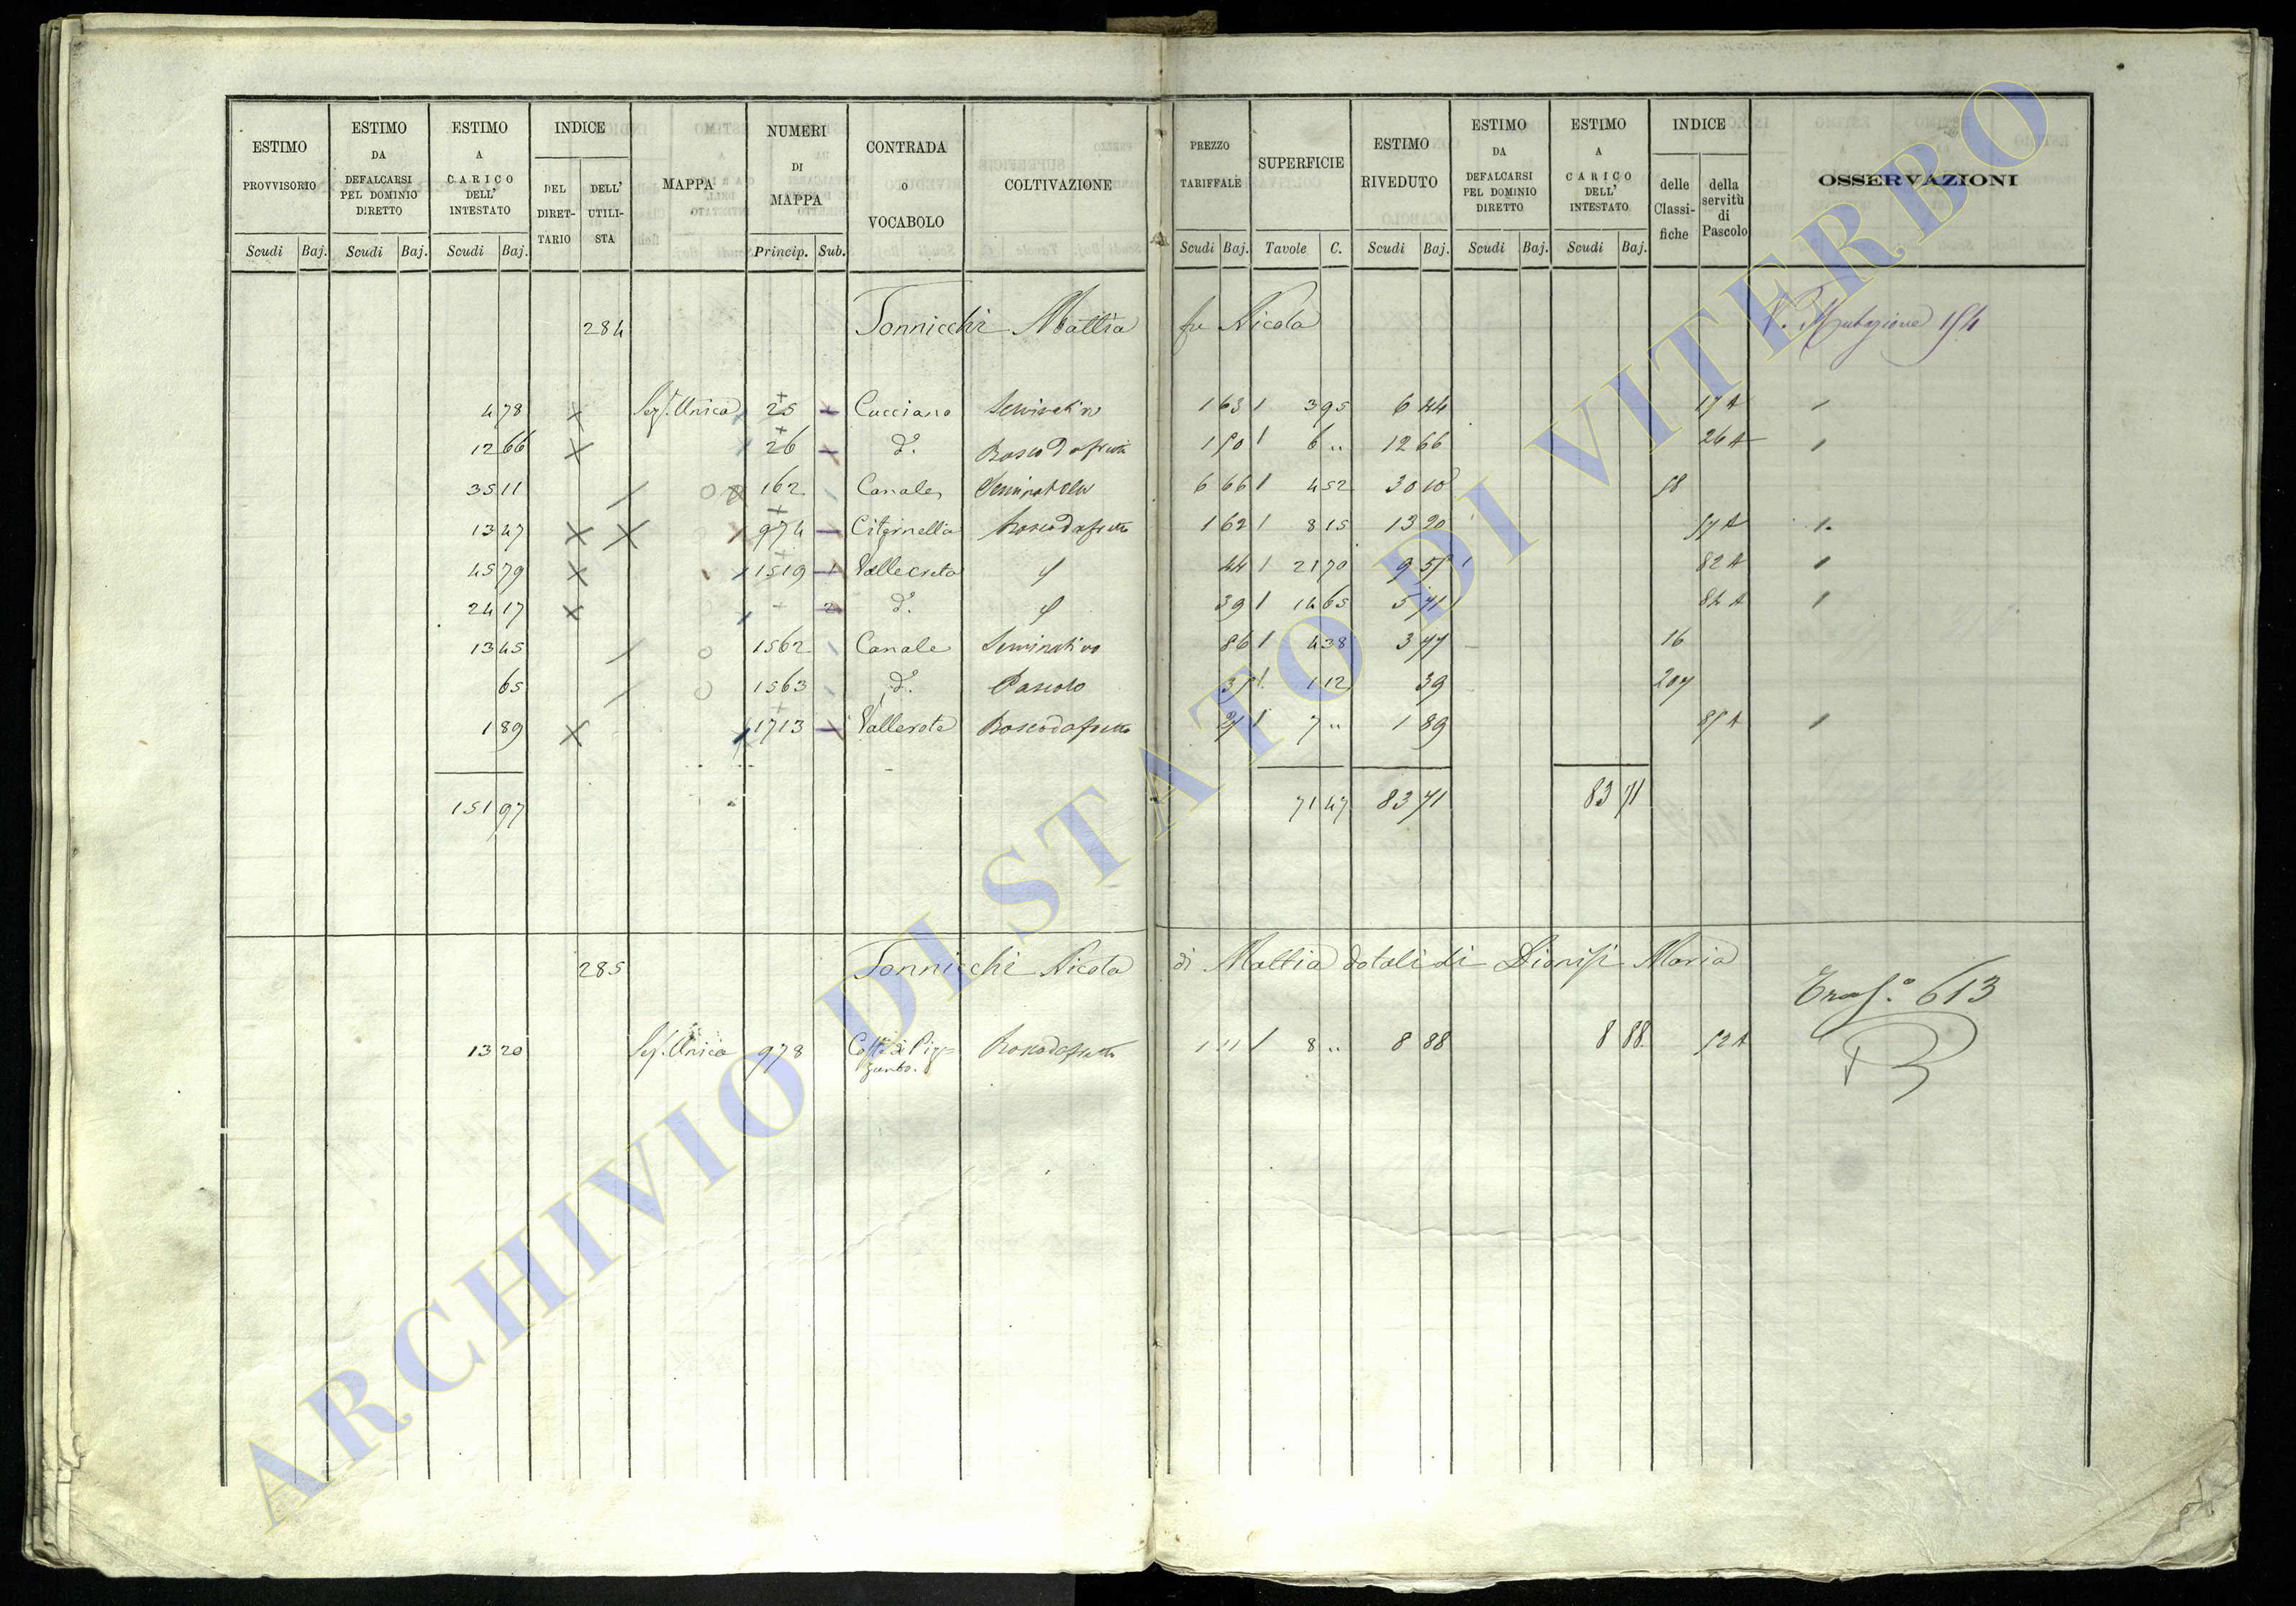 ESTIMO PROVVISORIO | ESTIMO DA DEFALCARSI PEL DOMINIO DIRETTO | ESTIMO A CARICO DELL' INTESTATO | INDICE | MAPPA | NUMERI DI MAPPA | CONTRADA O VOCABOLO | COLTIVAZIONE | PREZZO TARIFFALE | SUPERFICIE | ESTIMO RIVEDUTO | ESTIMO DA DEFALCARSI PEL DOMINIO DIRETTO | ESTIMO A CARICO DELL' INTESTATO | INDICE | OSSERVAZIONI
DEL DIRETTARIO | DELL' UTILISTA | delle Classifiche | della servitù di Pascolo
Scudi Baj. | Scudi Baj. | Scudi Baj. | Princip. Sub. | Scudi Baj. | Tavole C. | Scudi Baj. | Scudi Baj. | Scudi Baj.
284 Tonnicchi Mattia fu Nicola V. Mutazione 154
4 78 Sez. Unica 25 Cucciano Seminativo 1 63 3 95 6 44 17 A
12 66 26 d°. Bosco da frutto 6 " 12 66 26 A
35 11 162 Canale 6 66 4 52 58
13 47 974 Bosco da frutto 1 62 8 15 13 20 57 A
45 79 1519 1 44 21 70 9 82 A
24 17 2 d°. 39 14 65 5 71 84 A
13 45 1562 Canale Seminativo 86 4 38 3 77 16
65 1563 d°. Pascolo 1 12 39 207
1 89 1713 Vallerote Bosco da frutto 27 7 " 1 89 A
151 97 71 47 83 71 83 71
285 Tonnicchi Nicola di Mattia dotali di Dionisi Maria
613
13 20 Sez. Unica 978 Bosco da frutto 1 11 8 " 8 88 8 88 52 A
ARCHIVIO DI STATO DI VITERBO